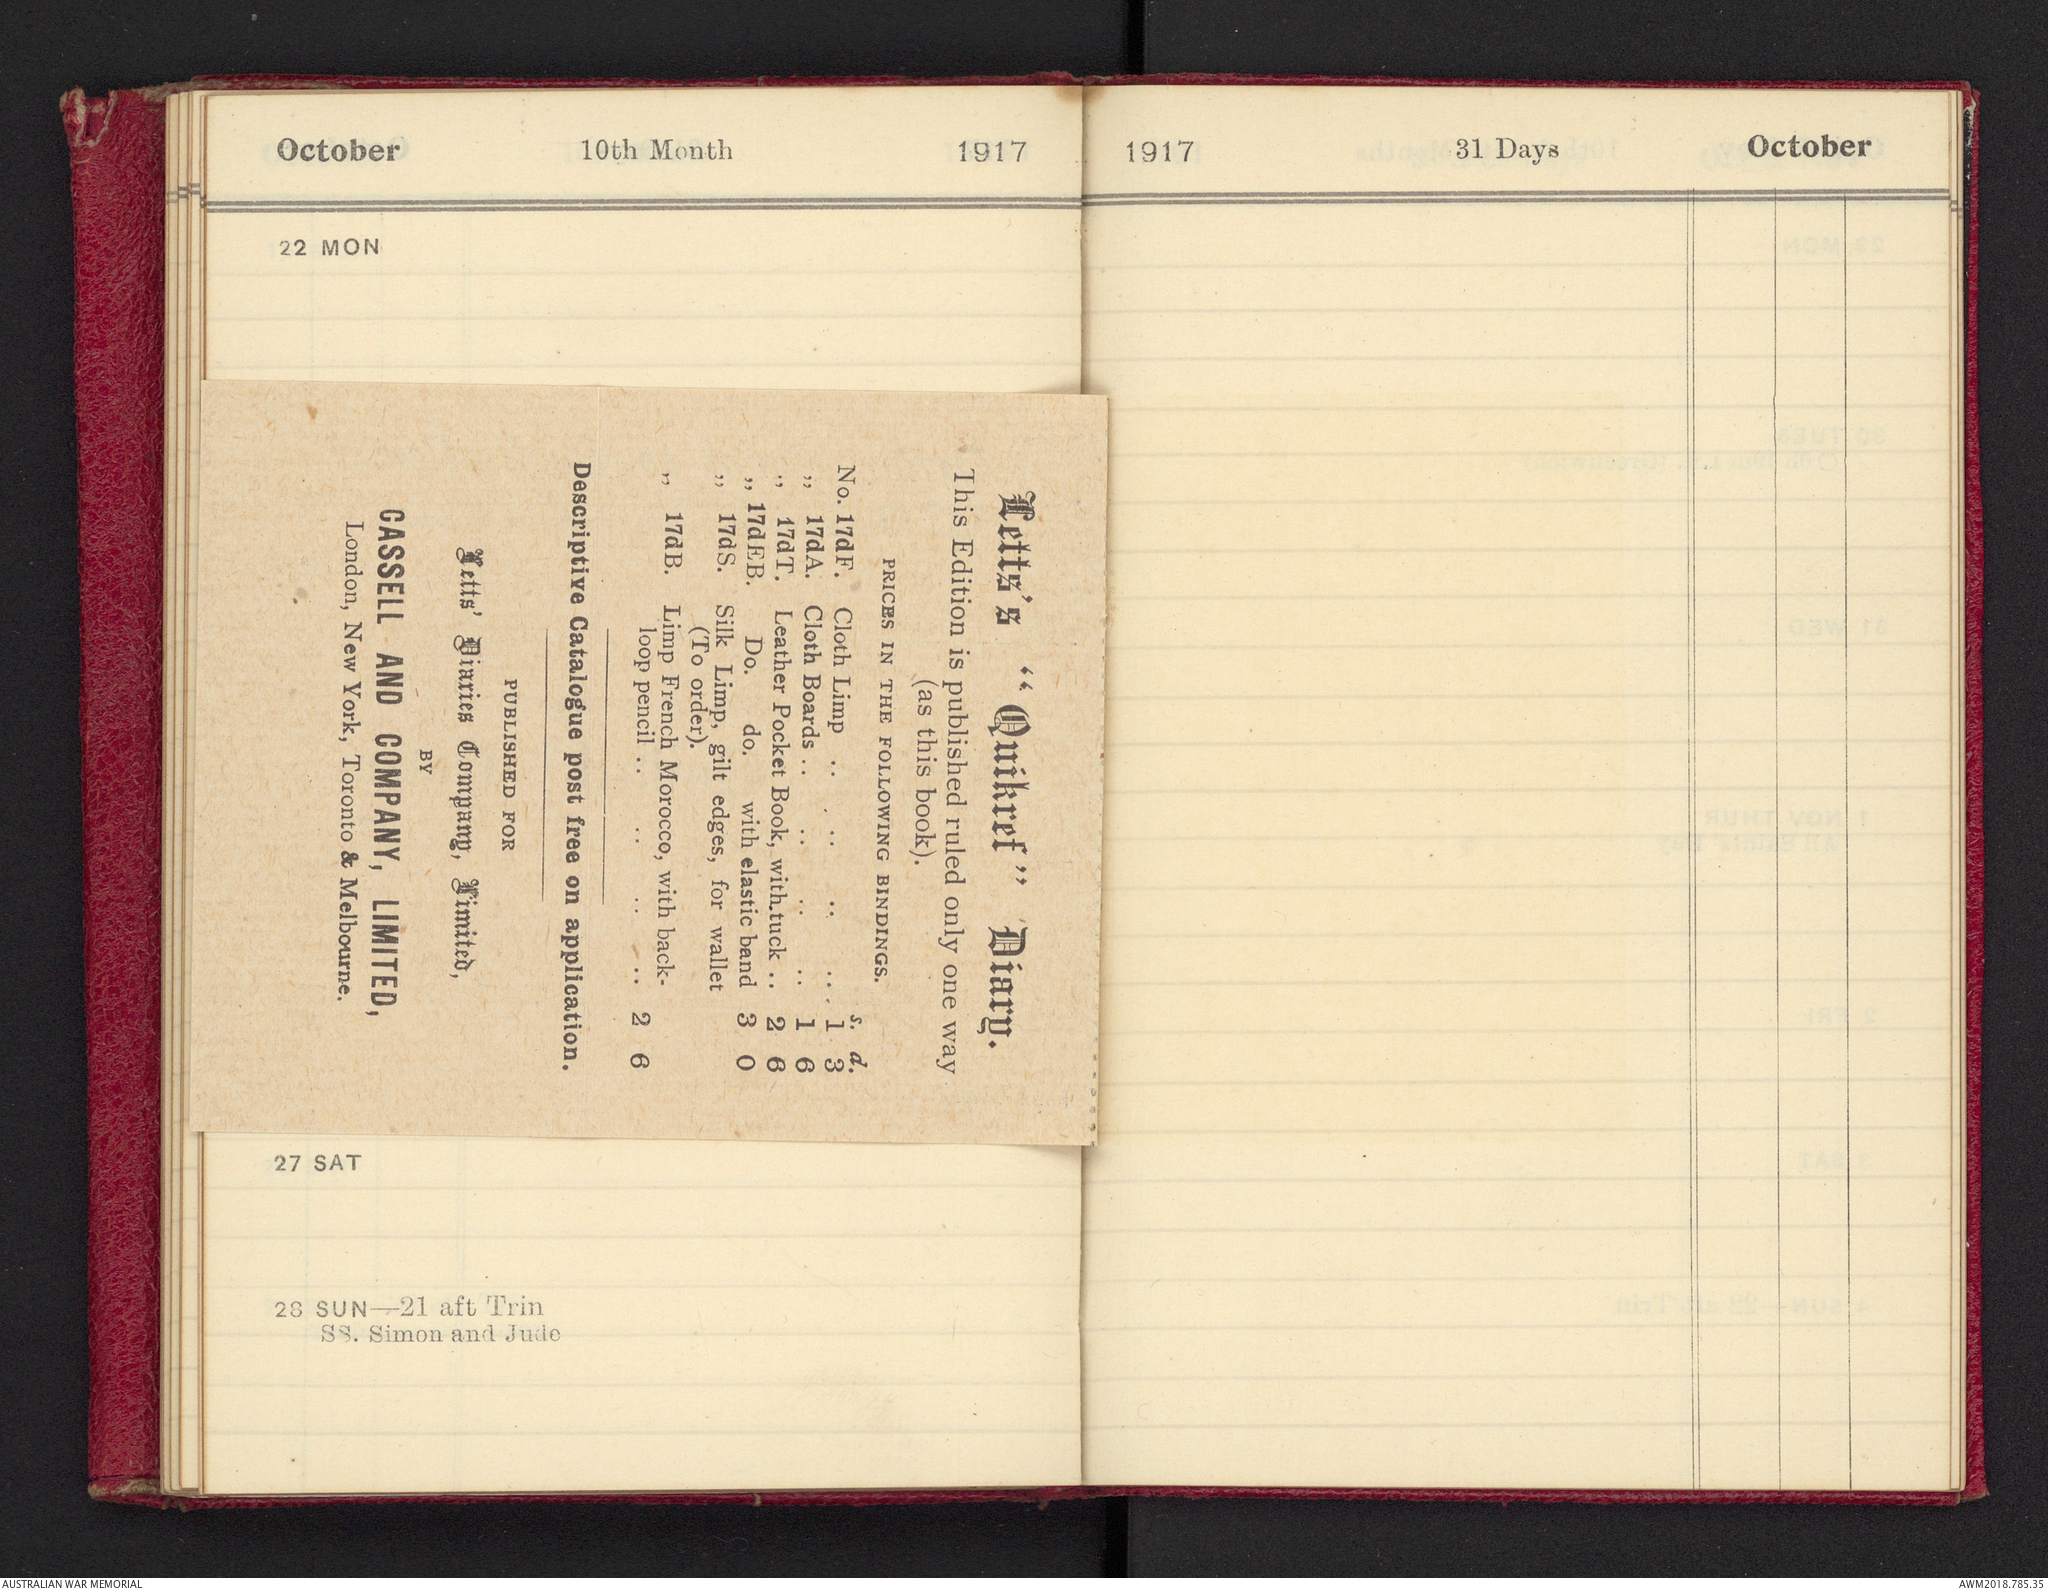 October 10th Month 1917
22 MON
Letts's "Quikref" Diary.
This Edition is published ruled only one way
(as this book).
PRICES IN THE FOLLOWING BINDINGS.
s. d.
No. 17dF. Cloth Limp .. .. .. .. 1 3
„ 17dA. Cloth Boards .. .. .. .. 1 6
„ 17dT. Leather Pocket Book, with tuck .. 2 6
„ 17dEB. Do. do. with elastic band 3 0
„ 17dS. Silk Limp, gilt edges, for wallet
(To order).
„ 17dB. Limp French Morocco, with back-
loop pencil .. .. .. .. 2 6
Descriptive Catalogue post free on application.
PUBLISHED FOR
Letts' Diaries Company, Limited,
BY
CASSELL AND COMPANY, LIMITED,
London, New York, Toronto & Melbourne.
27 SAT
28 SUN—21 aft Trin
SS. Simon and Jude
1917 31 Days October
AUSTRALIAN WAR MEMORIAL
AWM2018.785.35